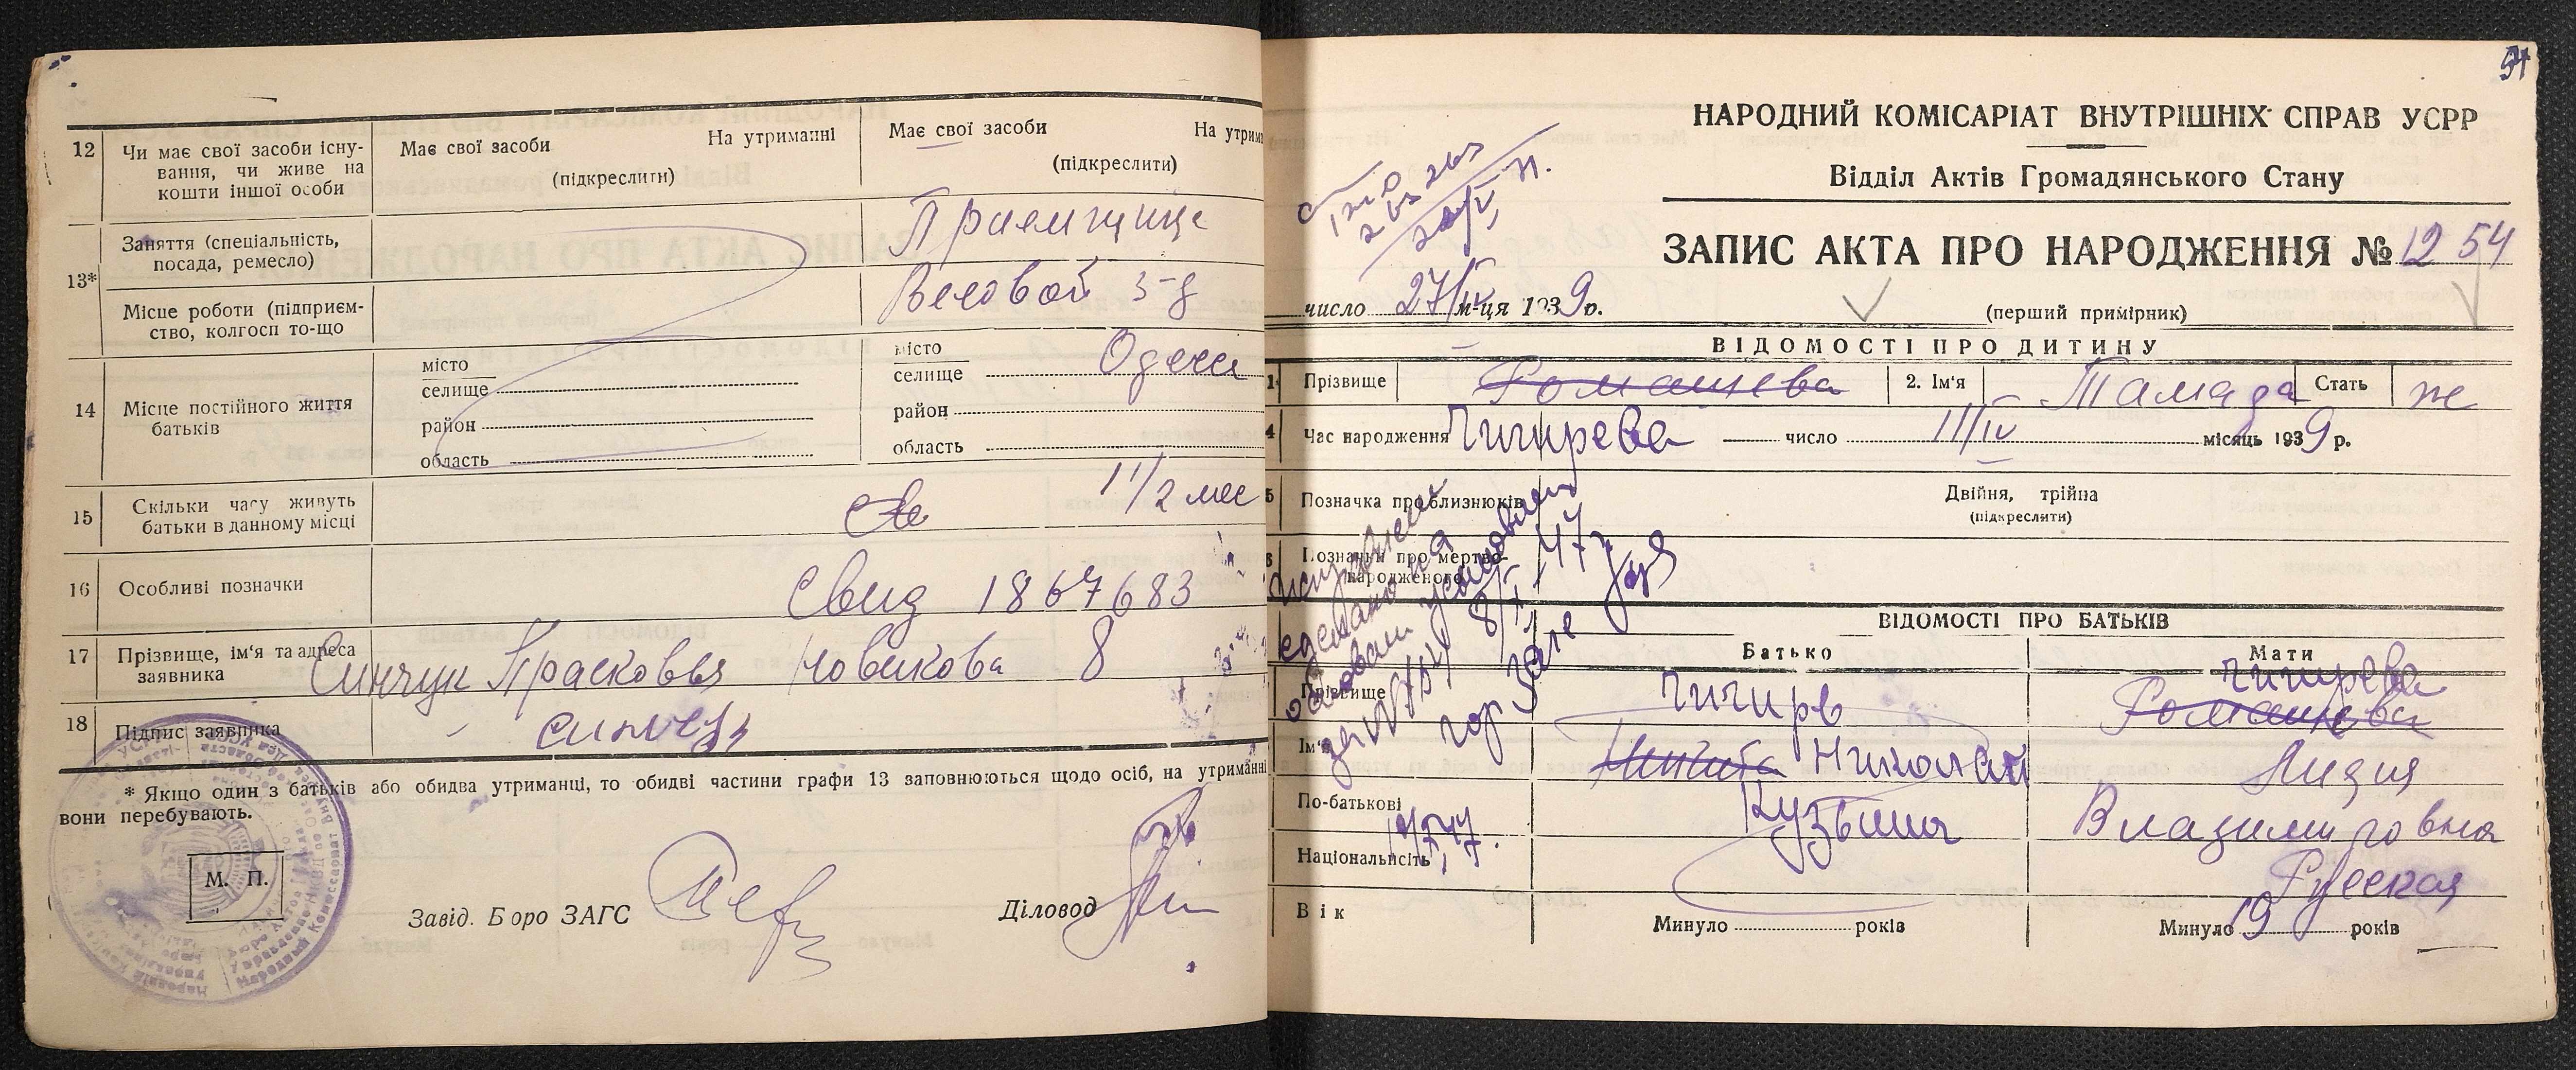 12
Чи має свої засоби існу-
вання, чи живе на
кошти іншої особи
Має свої засоби На утриманні
(підкреслити)
Має свої засоби На утрим
(підкреслити)
13*
Заняття (спеціальність,
посада, ремесло)
Приемщице
Місце роботи (підприєм-
ство, колгосп то-що
Весовой з-д
14
Місце постійного життя
батьків
місто
селище
район
область
місто
селище Одесса
район
область
15
Скільки часу живуть
батьки в данному місці
1 1/2 мес
16
Особливі позначки
Свид 1867683
17
Прізвище, ім'я та адреса
заявника
Синчук Прасковья Новикова 8
18
Підпис заявника
* Якщо один з батьків або обидва утриманці, то обидві частини графи 13 заповнюються щодо осіб, на утриманні
вони перебувають.
М. П.
Завід. Бюро ЗАГС
Діловод
54
НАРОДНИЙ КОМІСАРІАТ ВНУТРІШНІХ СПРАВ УСРР
Відділ Актів Громадянського Стану
ЗАПИС АКТА ПРО НАРОДЖЕННЯ № 1254
число 27/IV м-ця 1939 р.
(перший примірник)
ВІДОМОСТІ ПРО ДИТИНУ
1. Прізвище Ромашева 2. Ім'я Тамара Стать ж
4 Час народження Чигирева число 11/IV місяць 1939 р.
5 Позначка про близнюків
Двійня, трійна
(підкреслити)
6 Позначки про мертво-
народженого
Исправление
сделано на
основании усыновления
за № 8/I 47 г.
гор Загс
ВІДОМОСТІ ПРО БАТЬКІВ
Батько Мати
Прізвище Чигирв Чигирева
Ромашева
Ім'я Никита Николай Лидия
По-батькові Кузьмич Владимировна
Національність Русская
Вік Минуло років Минуло 19 років